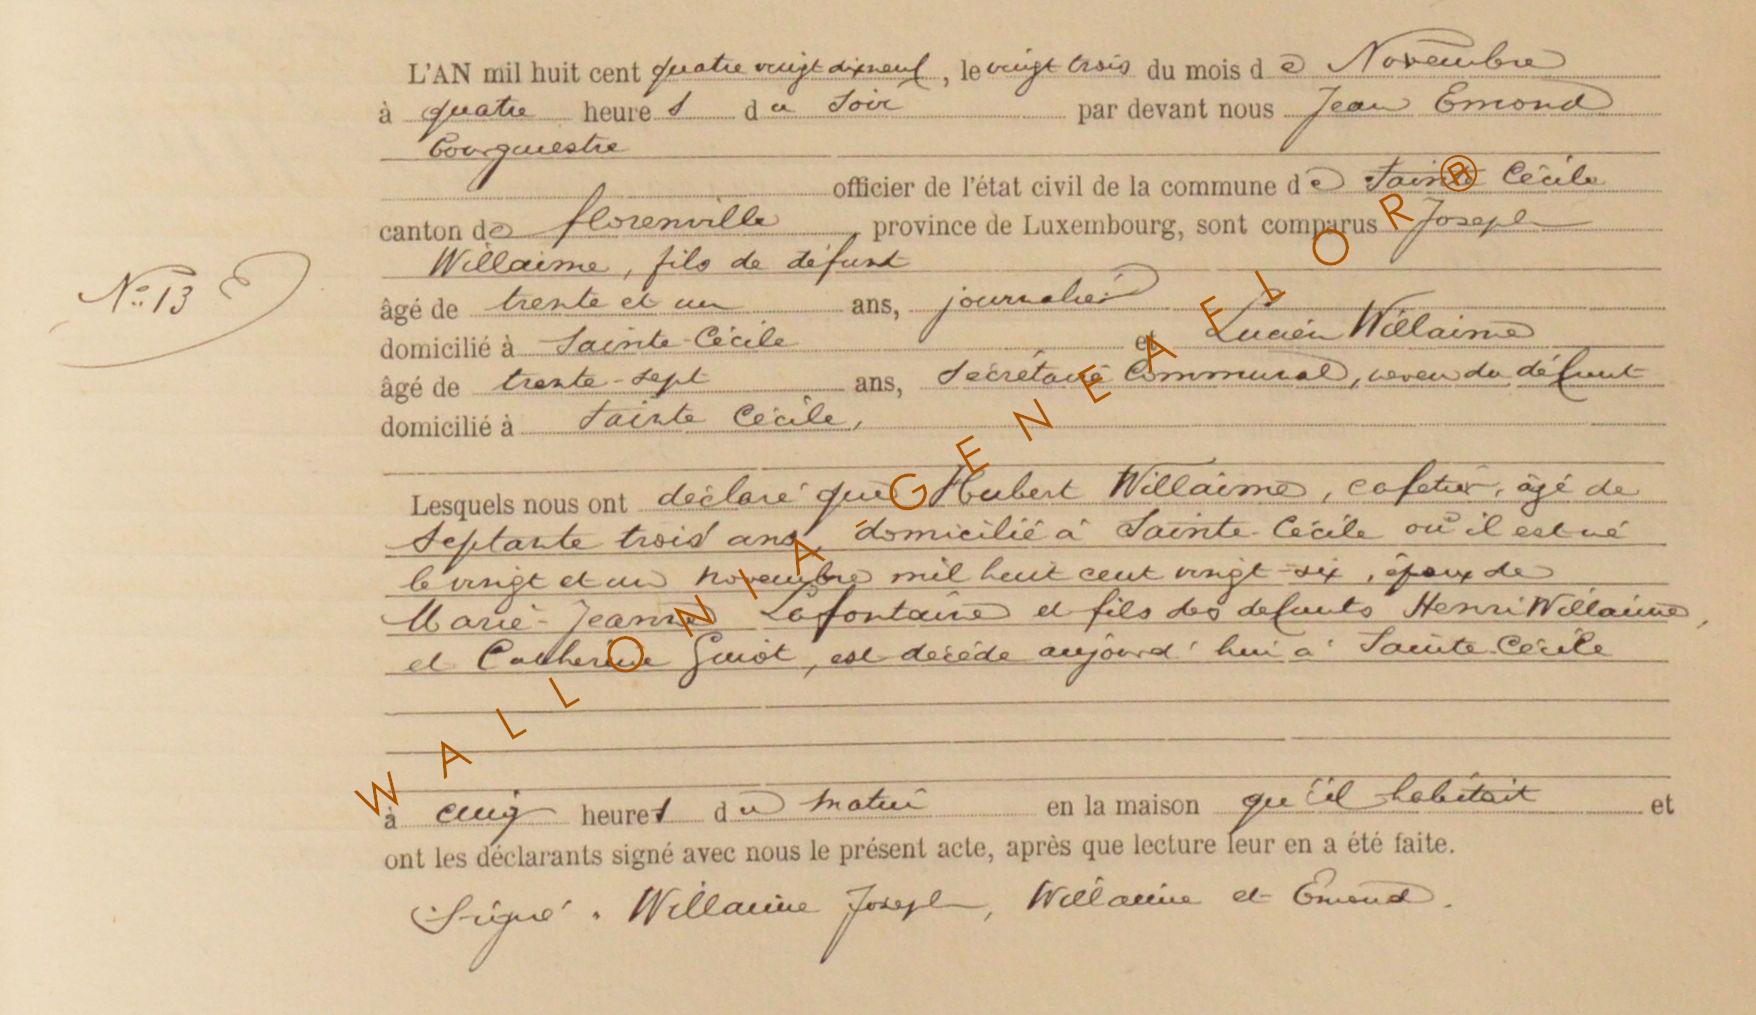 L'AN mil huit cent quatre vingt dix neuf, le vingt trois du mois de Novembre
à quatre heures du soir par devant nous Jean Emond
Bourgmestre
officier de l'état civil de la commune de Sainte Cécile
canton de florenville, province de Luxembourg, sont comparus Joseph
Willaime, fils de défunt
N° 13
âgé de trente et un ans, journalier
domicilié à Sainte-Cécile et Lucien Willaime
âgé de trente-sept ans, Secrétaire Communal, neveu du défunt
domicilié à Sainte Cécile,
Lesquels nous ont déclaré que Hubert Willaime, cafetier, âgé de
Septante trois ans, domicilié à Sainte-Cécile où il est né
le vingt et un novembre mil huit cent vingt-six, époux de
Marie-Jeanne Lafontaine et fils des défunts Henri Willaime,
et Catherine Guiot, est décédé aujourd'hui à Sainte-Cécile
à cinq heures du matin en la maison qu'il habitait et
ont les déclarants signé avec nous le présent acte, après que lecture leur en a été faite.
(Signé. Willaime Joseph, Willaime et Emond.
WALLONIA-GENEAFLOR®